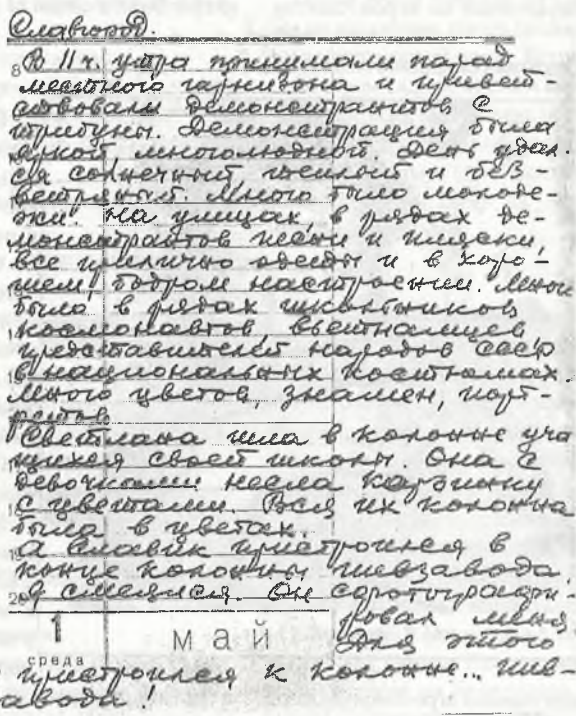 Славгород.
8 В 11 ч. утра принимали парад
местного гарнизона и привет-
ствовали демонстрантов с
трибуны. Демонстрация была
яркой, многолюдной. День удал-
ся солнечный теплый и без-
ветряный. Много было молоде-
жи. На улицах, в рядах де-
монстрантов песни и пляски,
все прилично одеты и в хоро-
шем, бодром настроении. Много
было в рядах школьников
космонавтов, вьетнамцев,
представителей народов СССР
в национальных костюмах.
Много цветов, знамен, порт-
ретов.
Светлана шла в колонне уча
щихся своей школы. Она с
девочками несла корзинку
с цветами. Вся их колонна
была в цветах.
А Славик пристроился в
конце колонны пивзавода.
20 Я смеялся. Он сфотографи-
ровал меня
1 май Для этого
среда
пристроился к колонне... пив-
завода!